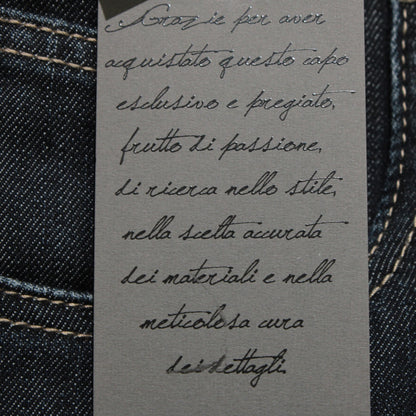 Grazie per aver
acquistato questo capo
esclusivo e pregiato,
frutto di passione,
di ricerca nello stile,
nella scelta accurata
dei materiali e nella
meticolosa cura
dei dettagli.